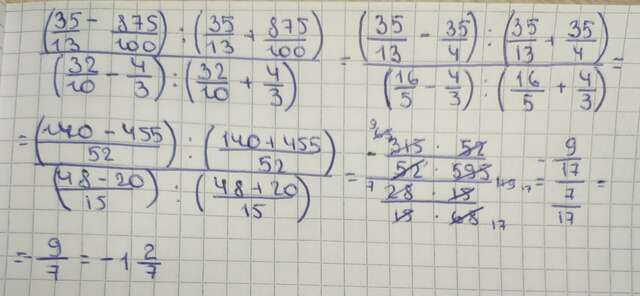 (35/13 - 875/100) : (35/13 + 875/100) / (32/10 - 4/3) : (32/10 + 4/3) = (35/13 - 35/4) : (35/13 + 35/4) / (16/5 - 4/3) : (16/5 + 4/3) =
= (140 - 455 / 52) : (140 + 455 / 52) / (48 - 20 / 15) : (48 + 20 / 15) = - 315 · 52 / 52 · 595 / 28 · 15 / 15 · 68 = - 9/17 / 7/17 =
= - 9/7 = - 1 2/7